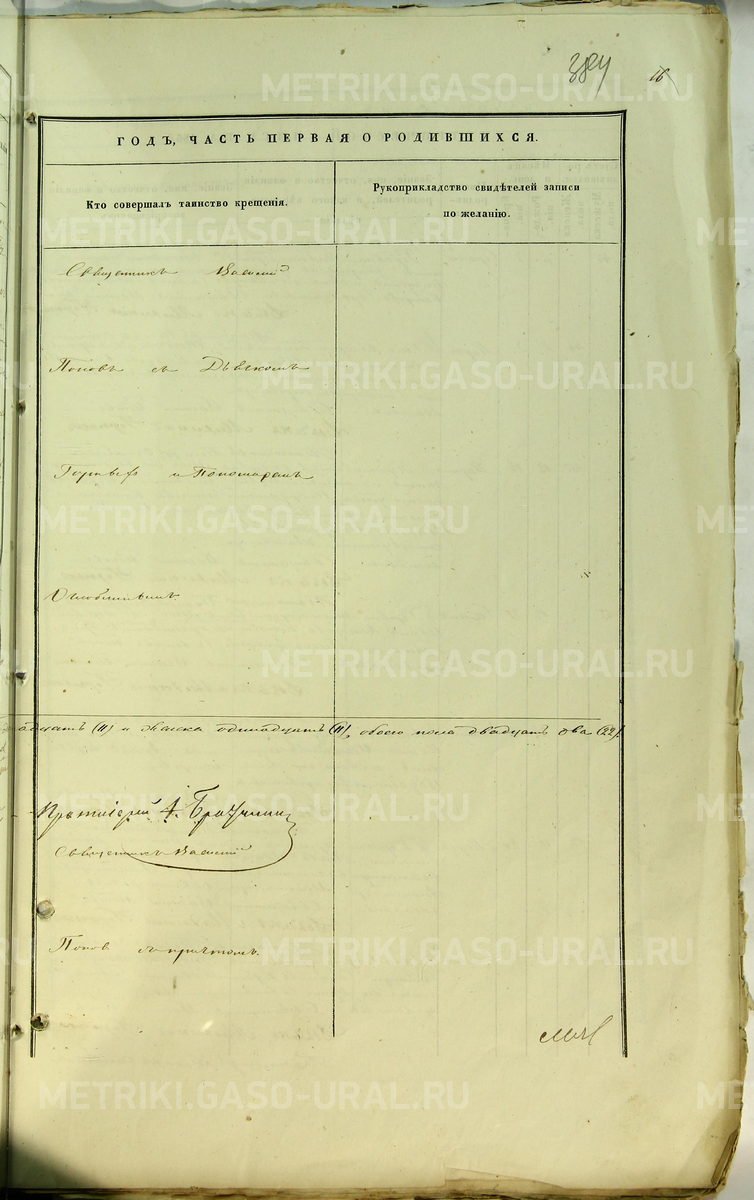 384 16
ГОДЪ, ЧАСТЬ ПЕРВАЯ О РОДИВШИХСЯ.
Кто совершалъ таинство крещенія.
Рукоприкладство свидѣтелей записи
по желанію.
Священникъ Василій
Поповъ съ Дьячкомъ
и Пономаремъ
адцать (11) и женска одинадцать (11), обоего пола двадцать два (22).
Протоіерей
Священникъ Василій
Попов съ причтомъ.
METRIKI.GASO-URAL.RU